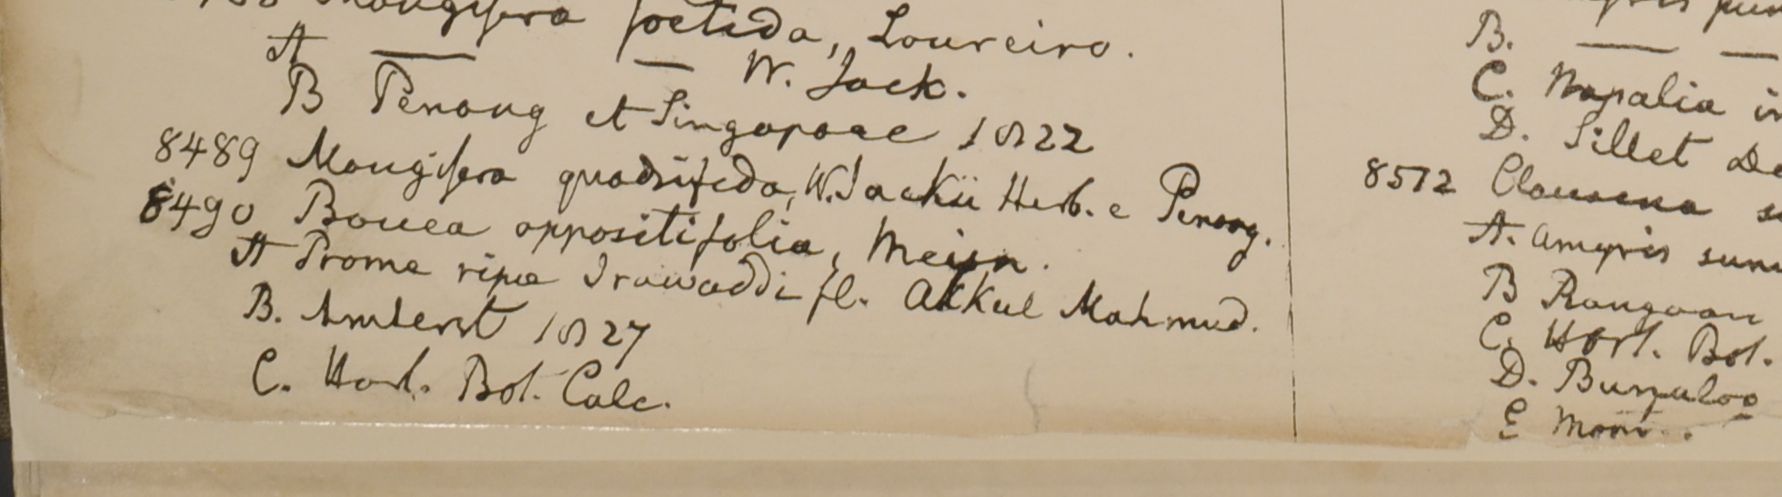 Mangifera foetida, Loureiro.
A — — W. Jack.
B Penang et Singapore 1822
8489 Mangifera quadrifida, W. Jackii Herb. e Penang.
8490 Bouea oppositifolia, Meisn.
A Prome ripa Irawaddi fl. Akkul Mahmud.
B. Amherst 1827
C. Hort. Bot. Calc.
B. — —
C. Napalia in
D. Sillet De
8512 Clausena su
A. Amyris
B Rangoon
C. Hort. Bot.
D.
E